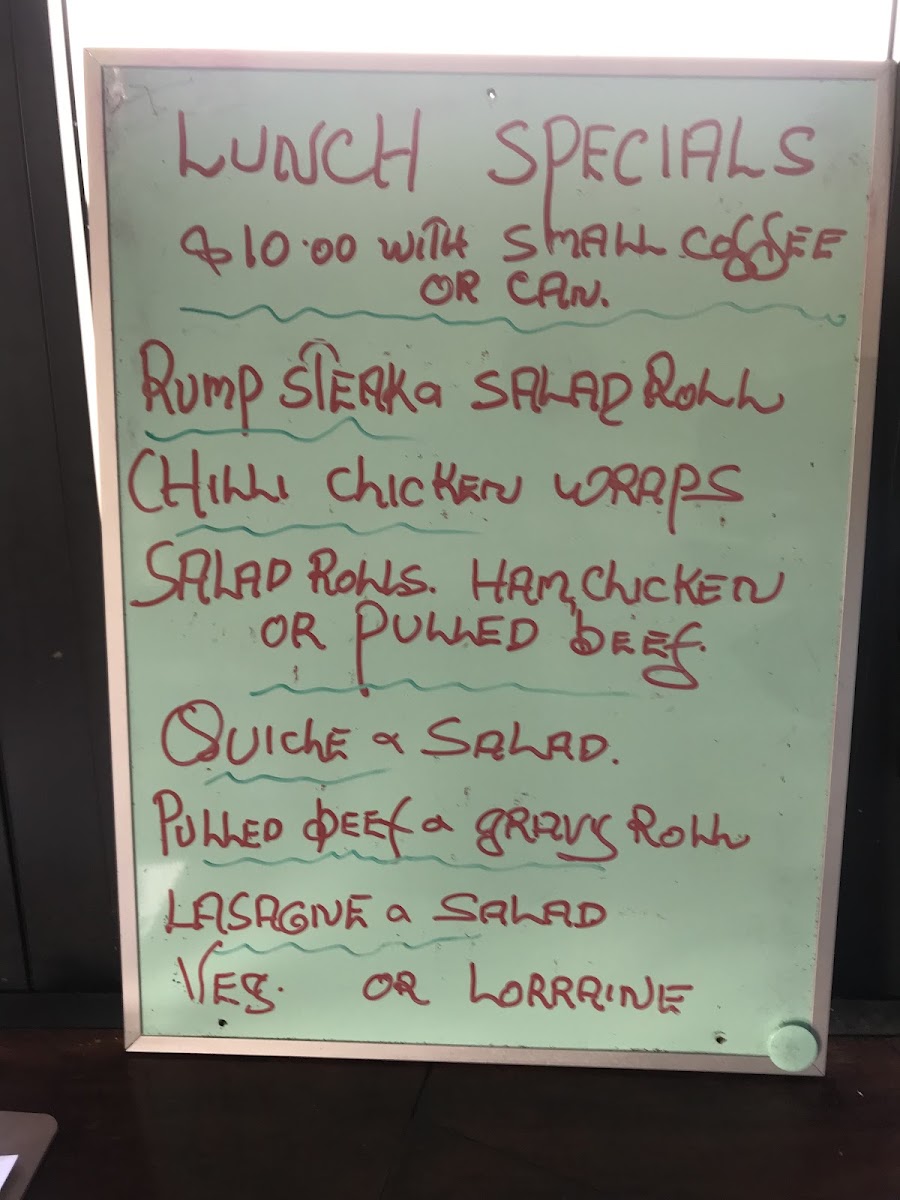 LUNCH SPECIALS
$10.00 WITH SMALL COFFEE
OR CAN.
RUMP STEAK & SALAD ROLL
CHILLI CHICKEN WRAPS
SALAD ROLLS. HAM, CHICKEN
OR PULLED BEEF.
QUICHE & SALAD.
PULLED BEEF & GRAVY ROLL
LASAGNE & SALAD
VEG. OR LORRAINE